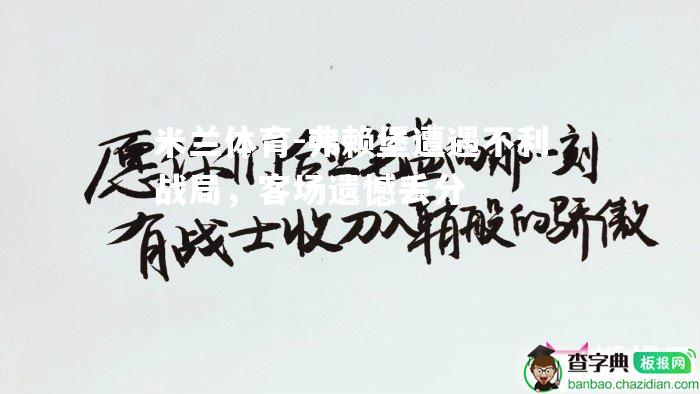 米兰体育-弗赖堡遭遇不利
战局，客场遗憾丢分
愿你们合上笔盖的那一刻
有战士收刀入鞘般的骄傲
查字典 板报网
banbao.chazidian.com